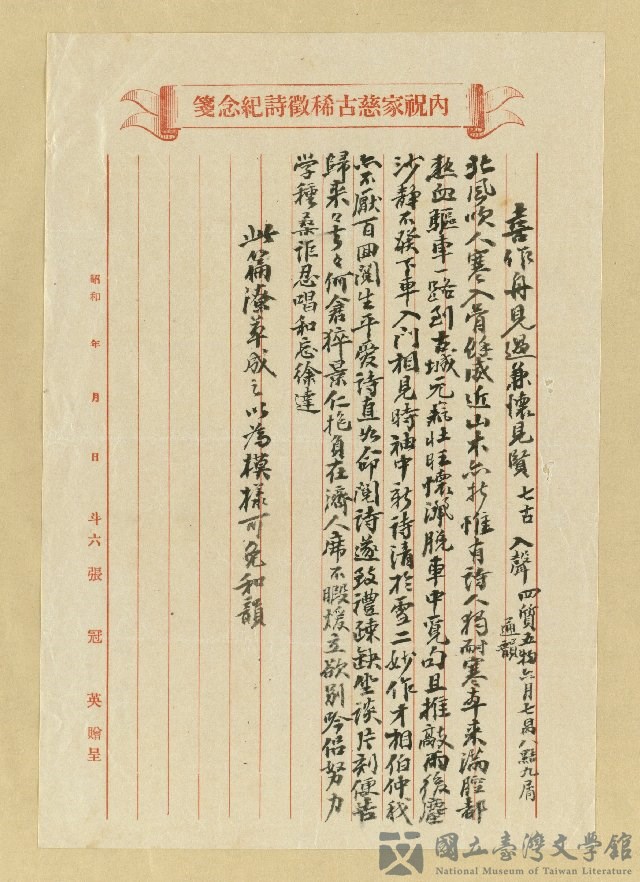 內祝家慈古稀徵詩紀念箋
喜作舟見過兼懷見賢 七古 入聲 四質五物六月七曷八黠九屑
通韻
北風吹人寒入骨餘威近山木亦折惟有詩人獨耐寒專來滿腔都
熱血驅車一路到古城元氣壯旺懷洒脫車中覓句且推敲雨後塵
沙靜不發下車入門相見時袖中新詩清於雪二妙作才相伯仲我
亦不厭百回閱生平愛詩直如命閱詩遂致禮疎缺坐談片刻便告
歸來々去々何倉猝景仁抱負在濟人席不暇煖立欲別吟侶努力
学種桑詎忍唱和忘徐達
此篇潦草成之以為模樣可免和韻
昭和 年 月 日 斗六 張冠英 贈呈
國立臺灣文學館
National Museum of Taiwan Literature